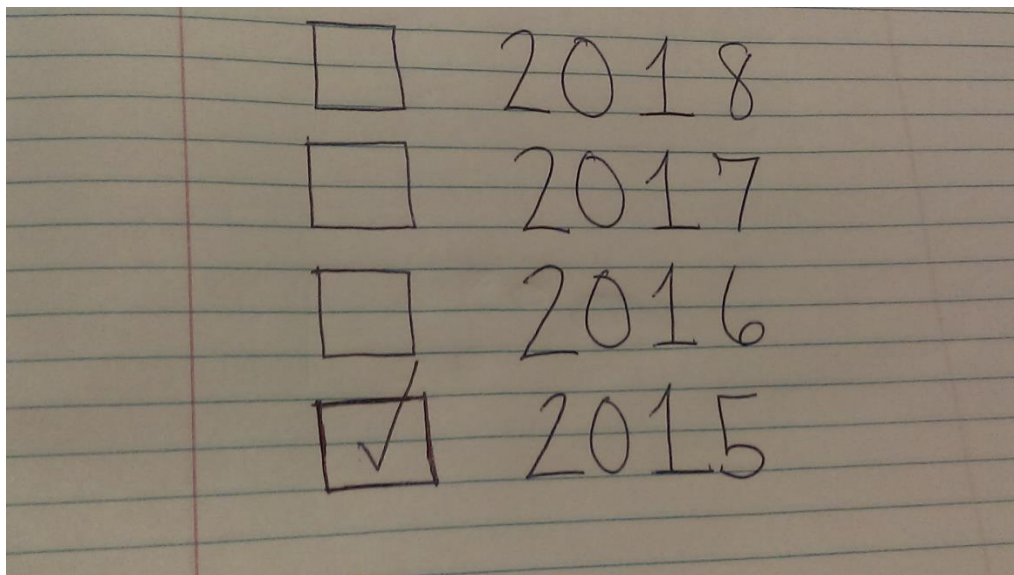 ☐ 2018
☐ 2017
☐ 2016
☑ 2015